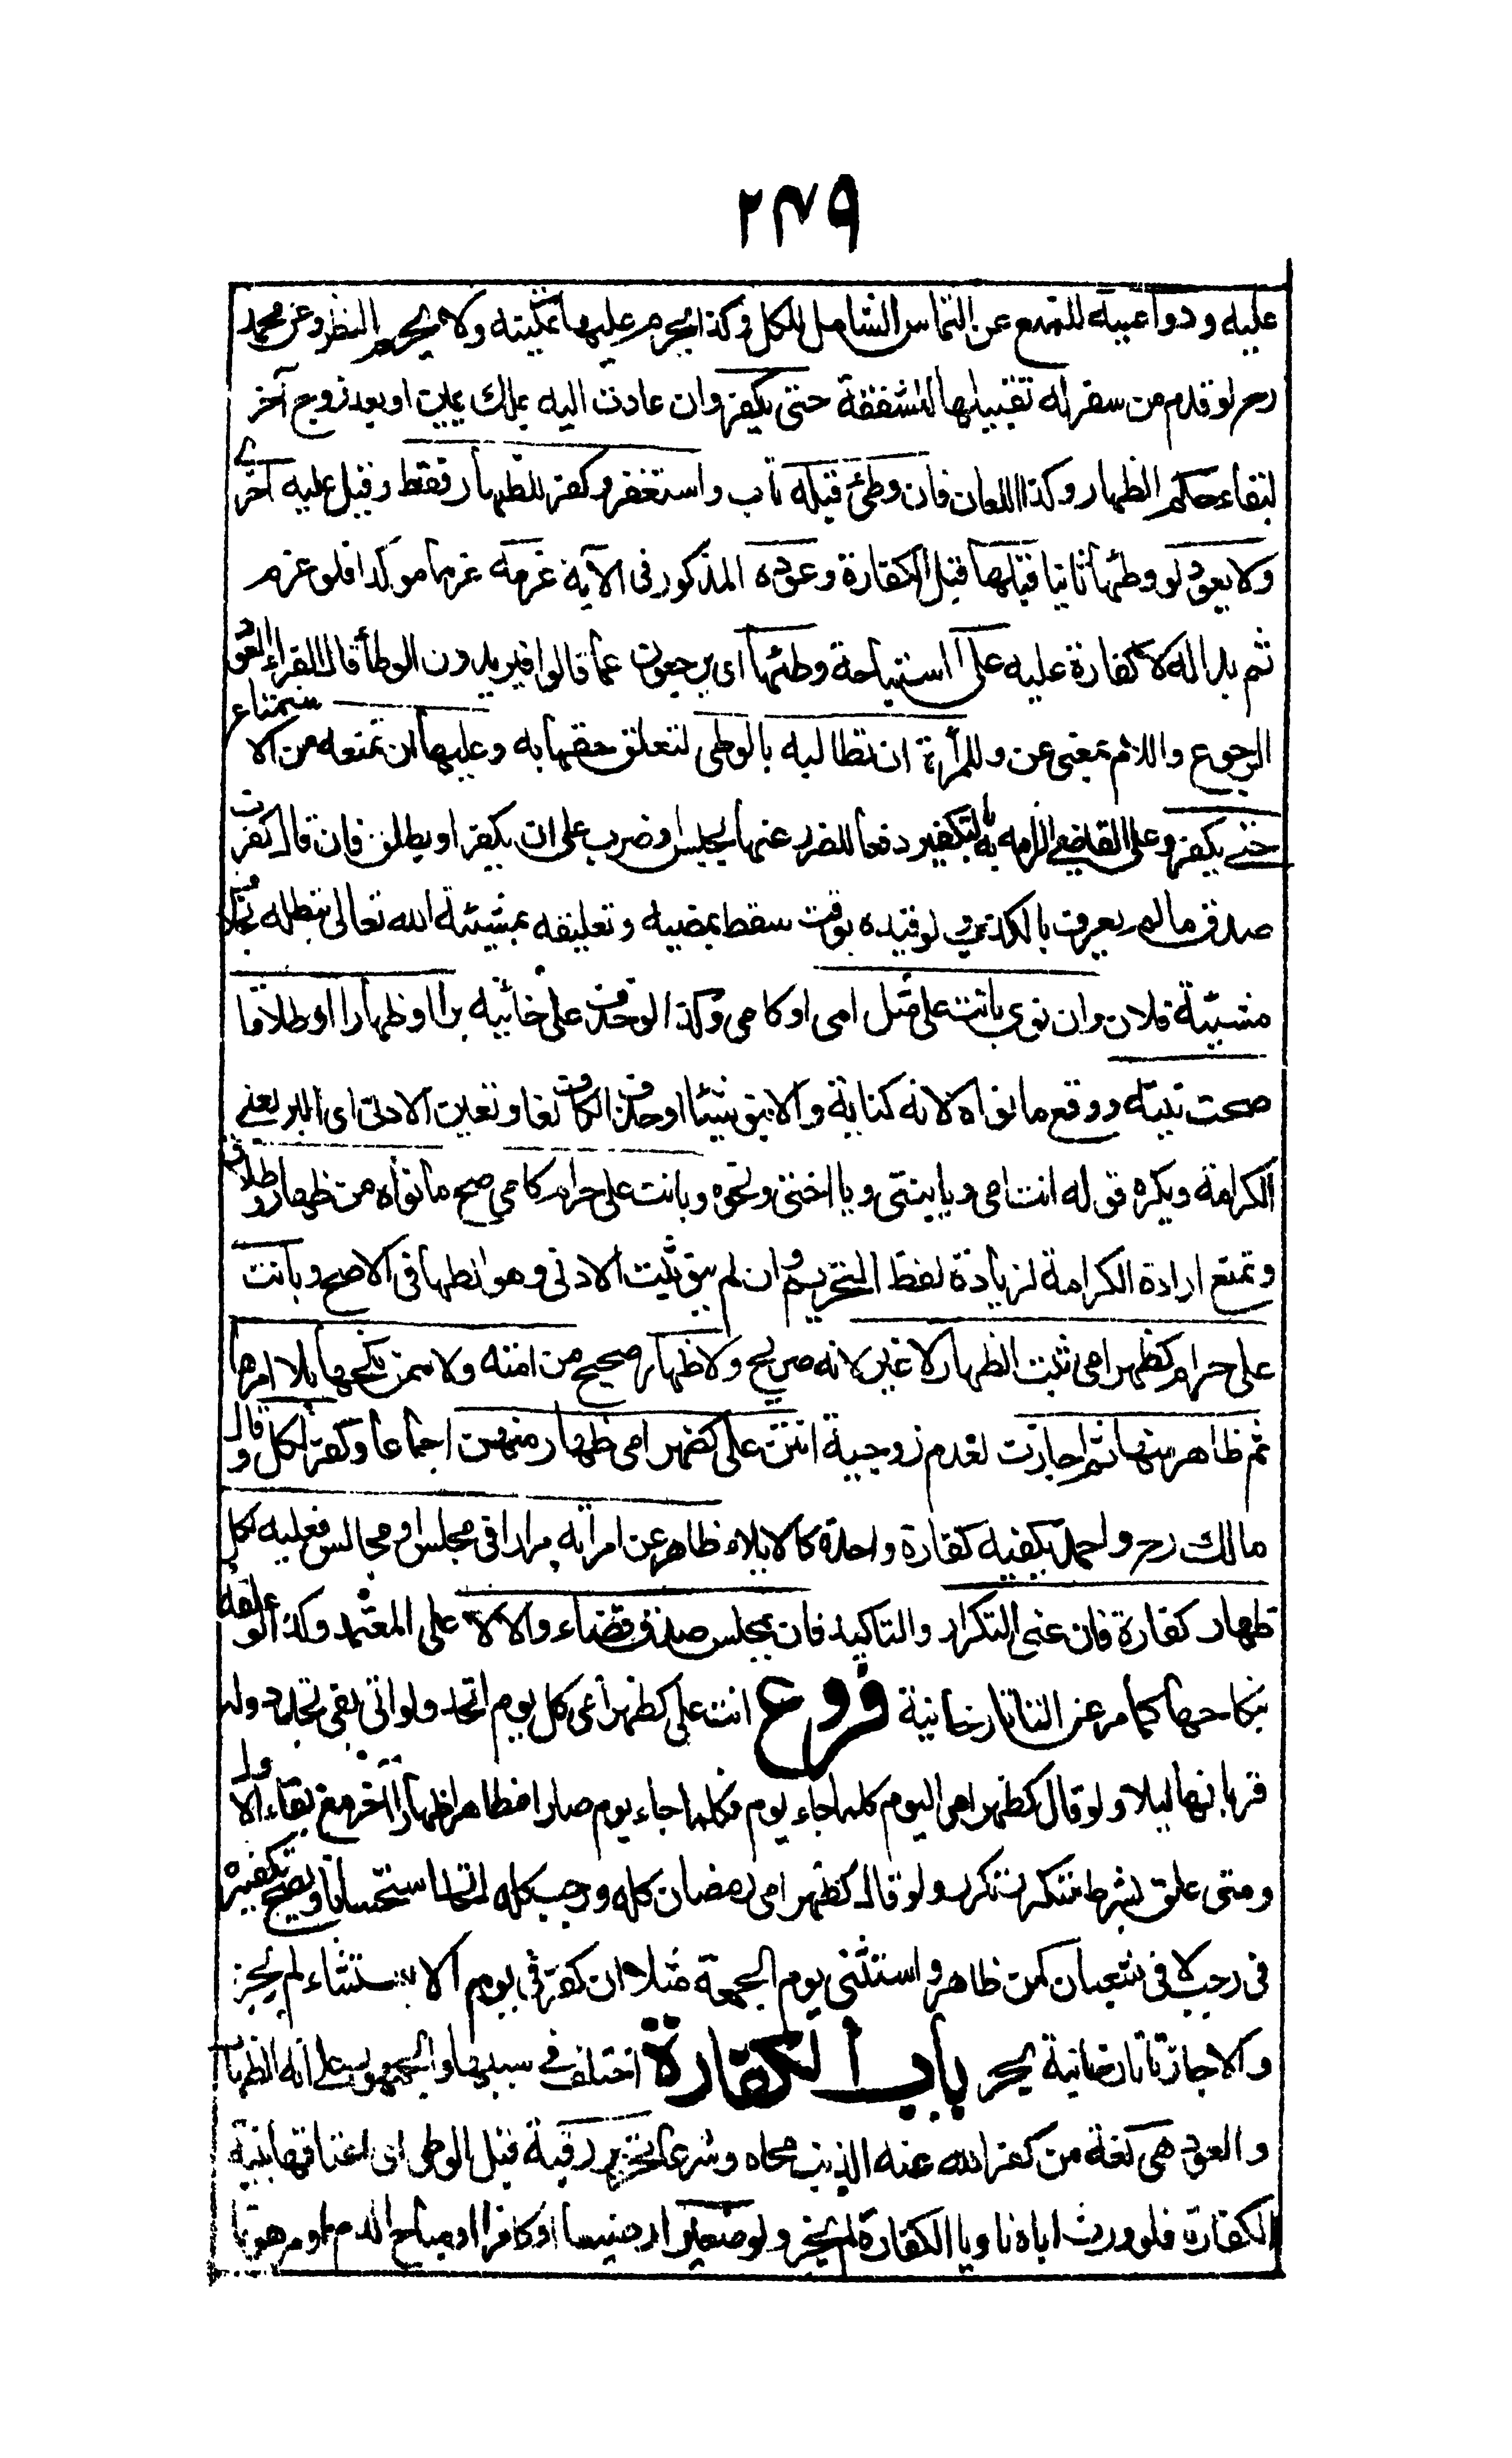 ٢٤٩
عليه ودواعيه للمنع عن التماس الشامل للكل وكذا يحرم عليها تمكينه ولا يحرم النظر وعن محمد
رحمه لو قدم من سفر له تقبيلها للشفقة حتى يكفر وان عادت اليه بملك يمين او بعد زوج آخر
لبقاء حكم الظهار وكذا اللعان فان وطئ قبله تاب واستغفر وكفر للظهار فقط وقيل عليه اخرى
ولا يعود لو وطئها ثانيا قبلها قبل الكفارة وعوده المذكور فى الآية عزمه عزما موكدا فلو عزم
ثم بدا له لا كفارة عليه على استباحة وطئها اى يرجعون عما قالوا فيريدون الوطأ قال الفراء العود
الرجوع واللام بمعنى عن وللمرأة ان تطالبه بالوطى لتعلق حقها به وعليها ان تمنعه من الاستمتاع
حتى يكفر وعلى القاضى الزامه به بالتكفير دفعا للضرر عنها بحبس او ضرب على ان يكفر او يطلق فان قال كفرت
صدق ما لم يعرف بالكذب ولو قيده بوقت سقط بمضيه وتعليقه بمشيئة الله تعالى تبطله بخلاف
مشيئة فلان وان نوى بانت على مثل امى او كامى وكذا لو حذف على خانية برا او ظهارا او طلاقا
صحت نيته ووقع ما نواه لانه كناية والا ينو شيئا او حذف الكاف لغا وتعين الادنى اى البر يعنى
الكرامة ويكره قوله انت امى ويا بنتى ويا اختى ونحوه وبانت على حرام كامى صح ما نواه من ظهار وطلاق
وتمنع ارادة الكرامة لزيادة لفظ التحريم وان لم ينو ثبت الادنى وهو الظهار فى الاصح وبانت
على حرام كظهر امى ثبت الظهار لا غير لانه صريح ولا ظهار صحيح من امته ولا ممن نكحها بلا امرها
ثم ظاهر منها ثم اجازت لعدم زوجية انتن على كظهر امى ظهار منهن اجماعا وكفر لكل وقال
مالك رحمه واحمد يكفيه كفارة واحدة كالايلاء ظاهر عن امرأته مرارا فى مجلس او مجالس فعليه لكل
ظهار كفارة فان عنى التكرار والتاكيد فان بمجلس صدق قضاء والا لا على المعتمد وكذا لو علقه
بنكاحها كما مر عن التاتارخانية فروع انت على كظهر امى كل يوم اتحد ولو اتى بفى تجدد وله
قربانها ليلا ولو قال كظهر امى اليوم كلما جاء يوم فكلما جاء يوم صار مظاهرا ظهارا آخر مع بقاء الاول
ومتى علق بشرط متكرر تكرر ولو قال كظهر امى رمضان كله ورجب كله اتحد استحسانا ويصح تكفيره
فى رجب لا فى شعبان كمن ظاهر واستثنى يوم الجمعة مثلا ان كفر فى يوم الاستثناء لم يجز
والا جاز تاتارخانية بحر باب الكفارة اختلف فى سببها والجمهور على انه الظهار
والعود هى لغة من كفر الله عنه الذنب محاه وشرعا تحرير رقبة قبل الوطى اى اعتاقها بنية
الكفارة فلو ورث اباه ناويا الكفارة لم يجز ولو صغيرا رضيعا او كافرا او مباح الدم او مرهونا